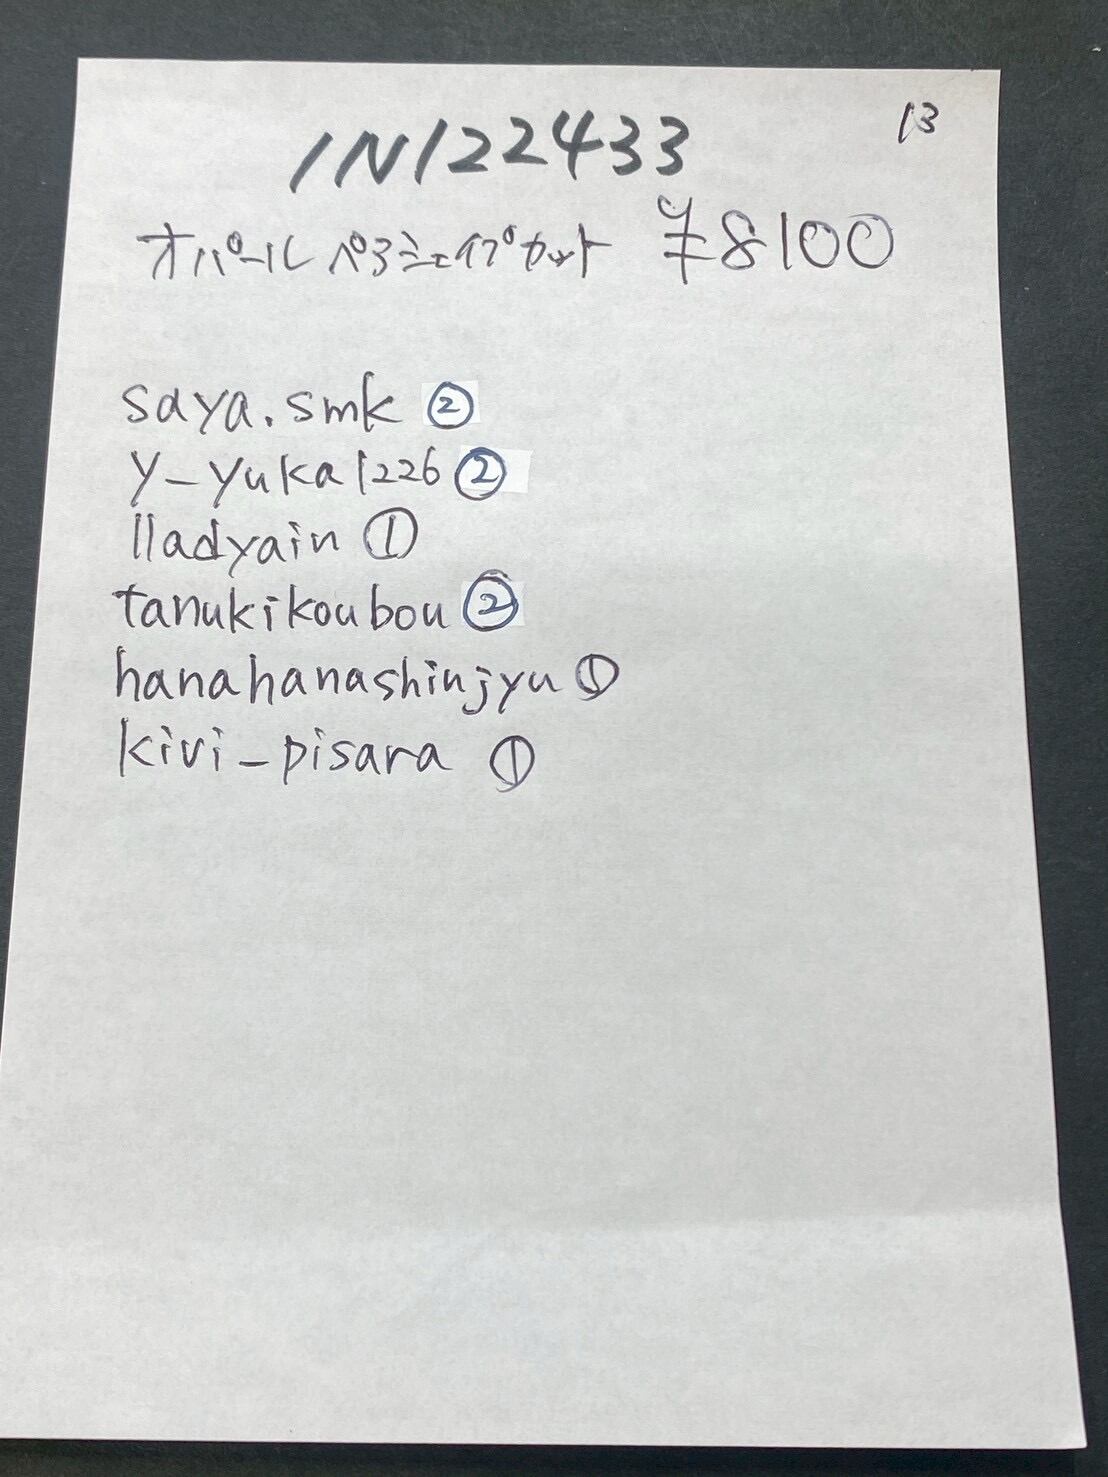 13
IN122433
オパール ペアシェイプカット ¥8100
saya.smk ②
y-yuka1226 ②
lladyain ①
tanukikoubou ②
hanahanashinjyu ①
kivi_pisara ①